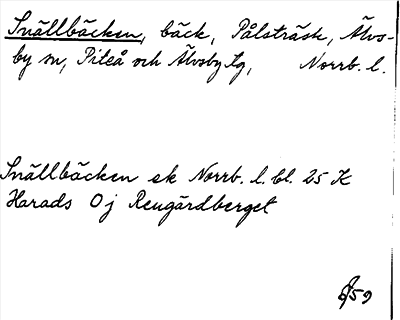 Snällbäcken, bäck, Pålsträsk, Älvs-
by sn, Piteå och Älvsby tg, Norrb. l.
Snällbäcken ek Norrb. l. bl. 25 K
Harads Oj Rengärdberget
59